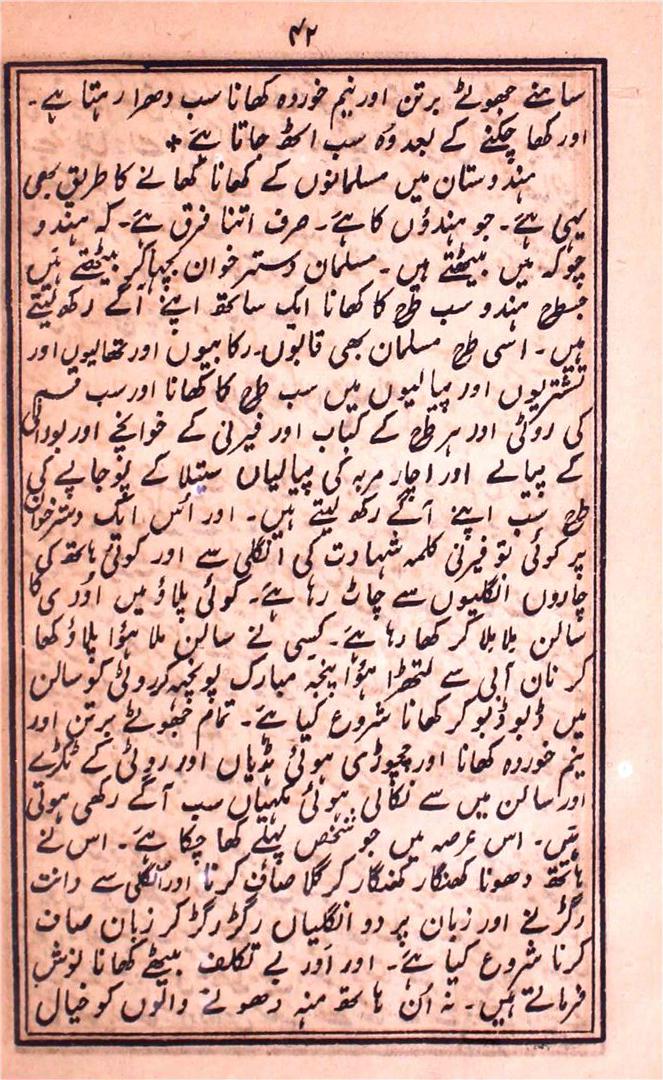 ۴۲
سامنے جھوٹے برتن اور نیم خوردہ کھانا سب دھرا رہتا ہے۔
اور کھا چکنے کے بعد وہ سب اٹھ جاتا ہے +
ہندوستان میں مسلمانوں کے کھانا کھانے کا طریق بھی
یہی ہے۔ جو ہندوٴں کا ہے۔ صرف اتنا فرق ہے۔ کہ ہندو
چوکہ میں بیٹھتے ہیں۔ مسلمان دسترخوان بچھا کر بیٹھتے ہیں
جسطرح ہندو سب طرح کا کھانا ایک ساتھ اپنے آگے رکھ لیتے
ہیں۔ اسی طرح مسلمان بھی قابوں۔ رکابیوں اور تھالیوں اور
تشتریوں اور پیالیوں میں سب طرح کا کھانا اور سب قسم
کی روٹی اور ہر طرح کے کباب اور فیرنی کے خوانچے اور بورانی
کے پیالے اور اچار مربہ کی پیالیاں ستیلا کے پوجاپے کی
طرح سب اپنے آگے رکھ لیتے ہیں۔ اور اُس ایک دسترخوان
پر کوئی تو فیرنی کلمہ شہادت کی انگلی سے اور کوئی ہاتھ کی
چاروں انگلیوں سے چاٹ رہا ہے۔ کوئی پلاؤ میں اَروی کا
سالن ملا ملا کر کھا رہا ہے۔ کسی نے سالن ملا ہوٴا پلاؤ کھا
کر نان آبی سے لتھڑا ہوٴا پنجہ مبارک پونچھ کر روٹی کو سالن
میں ڈبو ڈبو کر کھانا شروع کیا ہے۔ تمام جھوٹے برتن اور
نیم خوردہ کھانا اور چچوڑی ہوئی ہڈیاں اور روٹی کے ٹکڑے
اور سالن میں سے نکالی ہوئی مکھیاں سب آگے رکھی ہوتی
ہیں۔ اس عرصہ میں جو شخص پہلے کھا چکا ہے۔ اس نے
ہاتھ دھونا کھنگار کھنگار کر گلا صاف کرنا اور انگلی سے دانت
رگڑنے اور زبان پر دو انگلیاں رگڑ رگڑ کر زبان صاف
کرنا شروع کیا ہے۔ اور اَور بے تکلف بیٹھے کھانا نوش
فرماتے ہیں۔ نہ اُن ہاتھ منہ دھونے والوں کو خیال